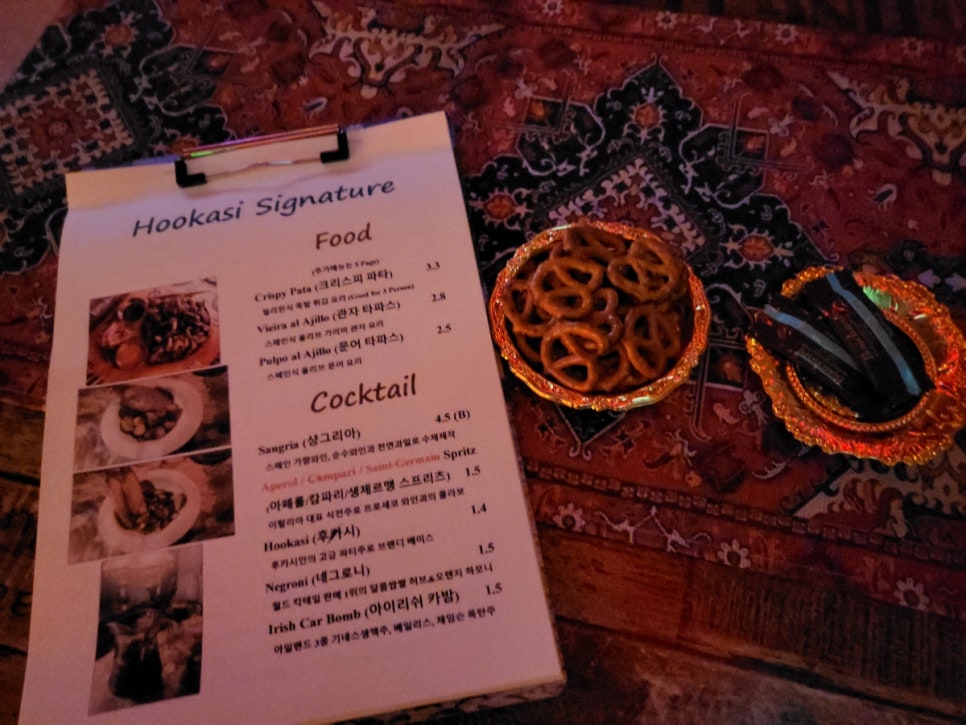 Hookasi Signature
Food
(추가메뉴는 3 Page)
Crispy Pata (크리스피 파타) 3.3
필리핀식 족발 튀김 요리 (Good for 3 Person)
Vieira al Ajillo (관자 타파스) 2.8
스페인식 올리브 가리비 관자 요리
Pulpo al Ajillo (문어 타파스) 2.5
스페인식 올리브 문어 요리
Cocktail
Sangria (샹그리아) 4.5 (B)
스페인 가향와인, 순수와인과 천연과일로 수제제작
Aperol / Campari / Saint-Germain Spritz
(아페롤/캄파리/생제르맹 스프리츠) 1.5
이탈리아 대표 식전주로 프로세코 와인과의 콜라보
Hookasi (후카시) 1.4
후카시만의 고급 파티주로 브랜디 베이스
Negroni (네그로니) 1.5
월드 칵테일 판매 1위의 달콤쌉쌀 허브&오렌지 하모니
Irish Car Bomb (아이리쉬 카밤) 1.5
아일랜드 3종 기네스생맥주, 베일리스, 제임슨 폭탄주